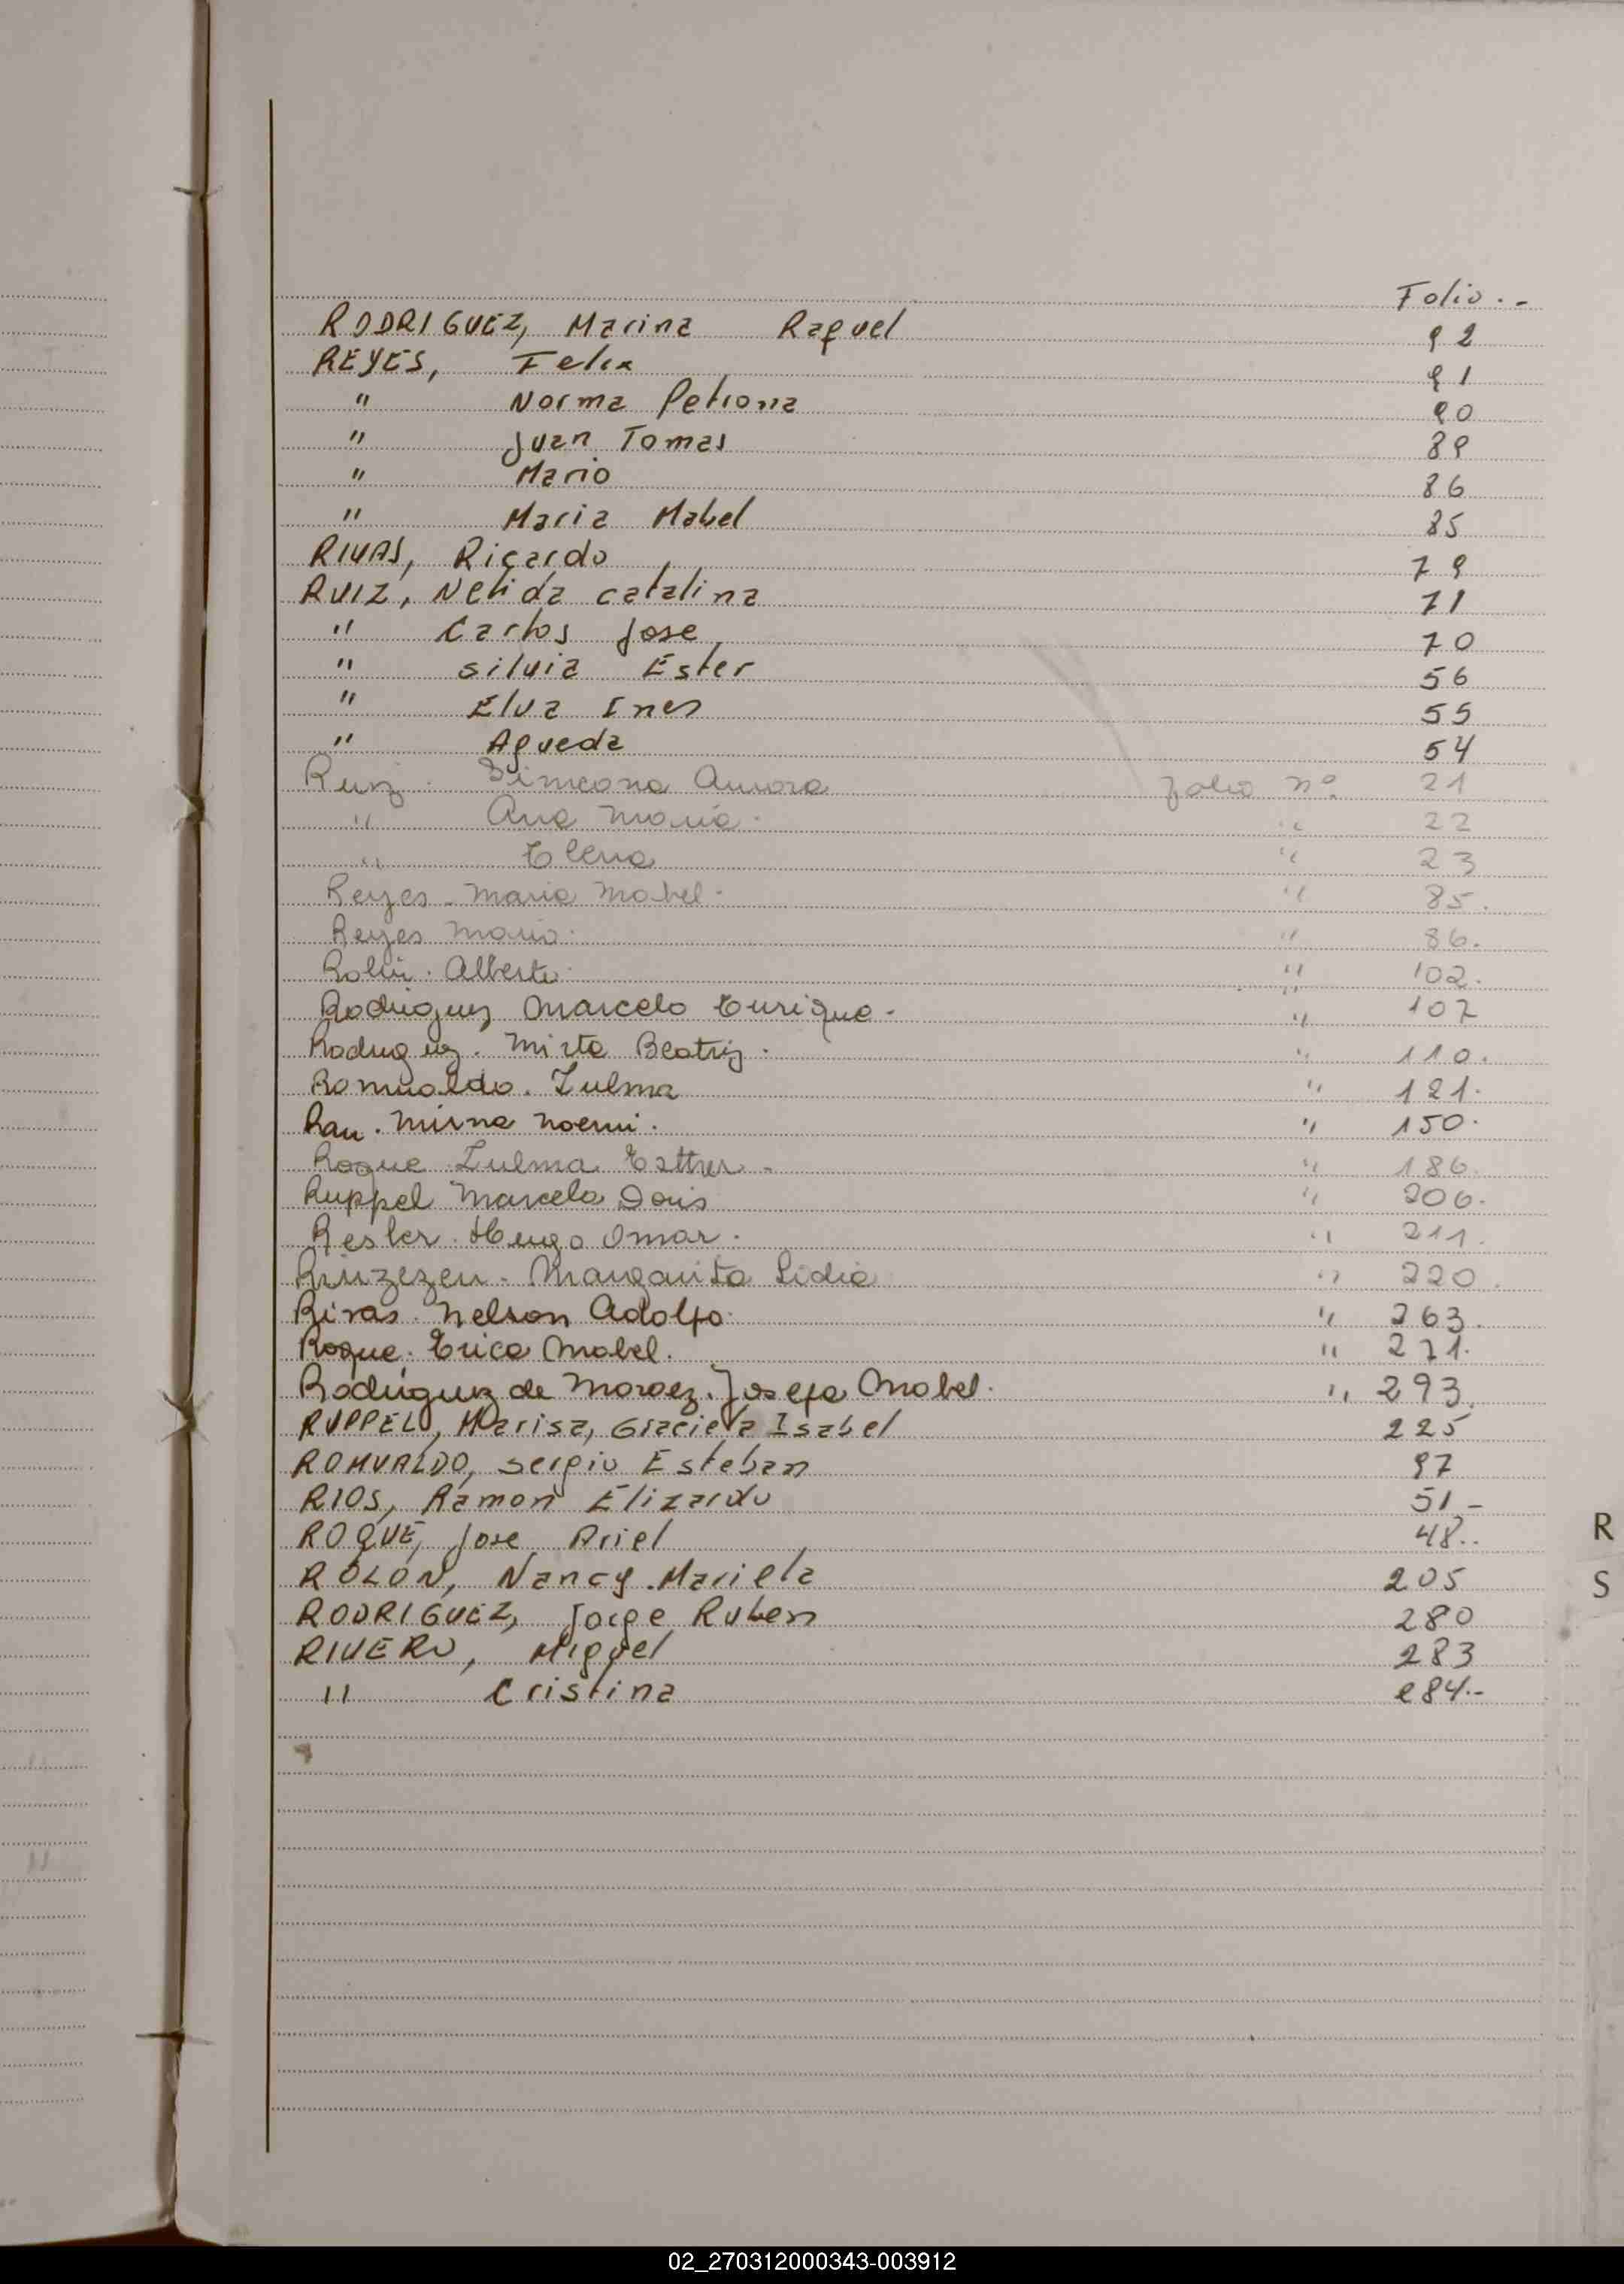 Folio.-
RODRIGUEZ, Marina Raquel 92
REYES, Felix 91
" Norma Petrona 90
" Juan Tomas 89
" Mario 86
" Maria Mabel 85
RIVAS, Ricardo 79
RUIZ, Nelida Catalina 71
" Carlos Jose 70
" Silvia Ester 56
" Elva Ines 55
" Agueda 54
Ruiz. Simeona Aurora folio nº 21
" Ana Maria. " 22
" Elena " 23
Reyes - Maria Mabel. " 85.
Reyes Mario. " 86.
Rolin. Alberto. " 102.
Rodriguez Marcelo Enrique. " 107
Rodriguez. Mirta Beatriz. " 110.
Romualdo. Zulma " 121.
Rau. Mirna Noemi. " 150.
Roque Zulma Esther - " 186.
Ruppel Marcela Doris " 206.
Resler. Hugo Omar. " 211.
Margarita Lidia " 220.
Rivas. Nelson Adolfo. " 263.
Roque. Erica Mabel. " 271.
Rodriguez de Moraez. Josefa Mabel. " 293.
RUPPEL, Marisa, Graciela Isabel 225
ROMUALDO, Sergio Esteban 97
RIOS, Ramon Elizardo 51-
ROQUE, Jose Ariel 48..
ROLON, Nancy.Mariela 205
RODRIGUEZ, Jorge Ruben 280
RIVERO, Miguel 283
" Cristina 284.-
R
S
02_270312000343-003912